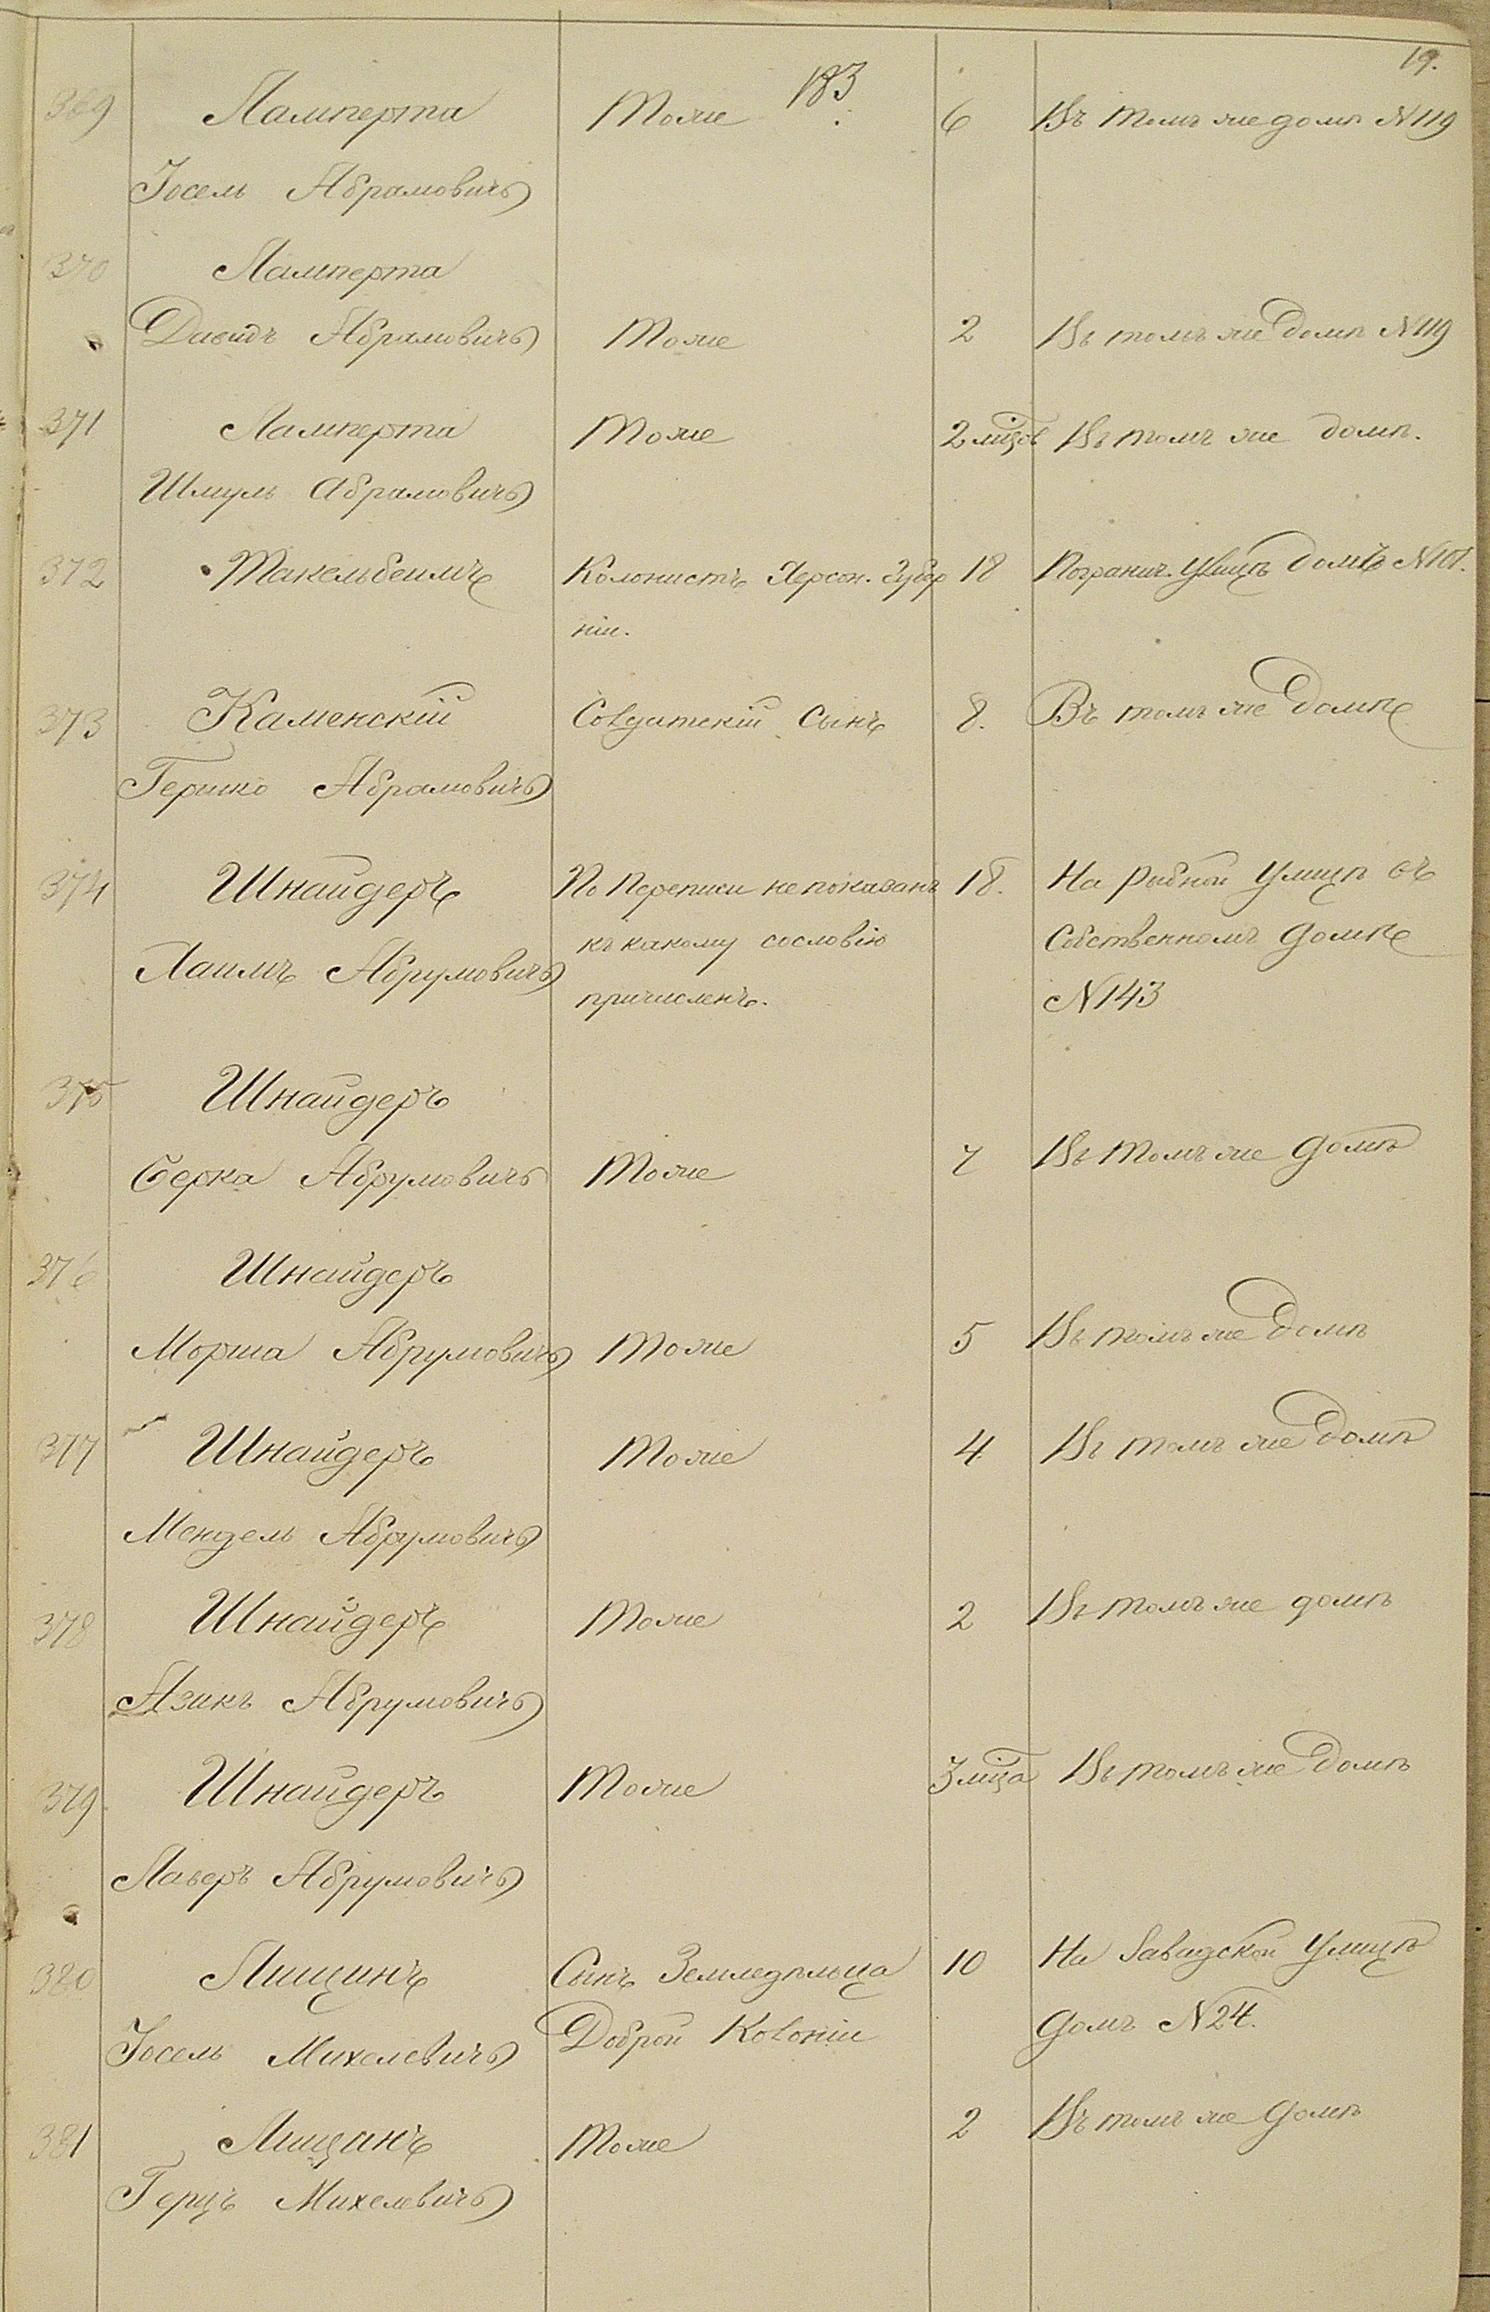 19.
183
369 Ламперта Тоже 6 Въ томъ же домѣ N 119
Іосель Абрамовичъ
370 Ламперта
Давидъ Абрамовичъ Тоже 2 Въ томъ же домѣ N 119
371 Ламперта Тоже 2 мцов Въ томъ же домѣ.
Шмуль Абрамовичъ
372 Такельбеимъ Колонистъ Херсон. Губер 18 Погранич. Улицѣ домъ N 101.
ніи.
373 Каменскій Солдатскій Сынъ 8. Въ томъ же Домѣ
Гершко Абрамовичъ
374 Шнайдеръ По Переписи не показанъ 18. На Рибной Улицѣ въ
къ какому сословію Собственномъ домѣ
Хаимъ Абрумовичъ
причисленъ. N 143
375 Шнайдеръ
Берка Абрумовичъ Тоже 7 Въ томъ же домѣ
376 Шнайдеръ
Морша Абрумовичъ Тоже 5 Въ томъ же Домѣ
377 Шнайдеръ Тоже 4 Въ томъ же Домѣ
Мендель Абрумовичъ
378 Шнайдеръ Тоже 2 Въ томъ же домѣ
Азикъ Абрумовичъ
379 Шнайдеръ Тоже 3 мца Въ томъ же Домѣ
Лаверъ Абрумовичъ
380 Лищинъ Сынъ Земледѣльца 10 На Завадской Улицѣ
Іосель Михелевичъ Доброй Колоніи домъ N 24.
381 Лищанъ Тоже 2 Въ томъ же домѣ
Герцъ Михелевичъ